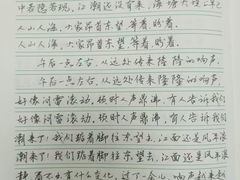 中若隐若现。江潮还没有来，海塘大堤上已
人山人海，大家昂首东望，等着，盼着。
人山人海，大家昂首东望，等着，盼着。
午后一点左右，从远处传来隆隆的响声，
午后一点左右，从远处传来隆隆的响声，
好像闷雷滚动。顿时人声鼎沸，有人告诉我们
好像闷雷滚动。顿时人声鼎沸，有人告诉我们
潮来了！我们踮着脚往东望去，江面还是风平浪
潮来了！我们踮着脚往东望去，江面还是风平浪
看不出有什么变化。过了一会儿，响声越来越